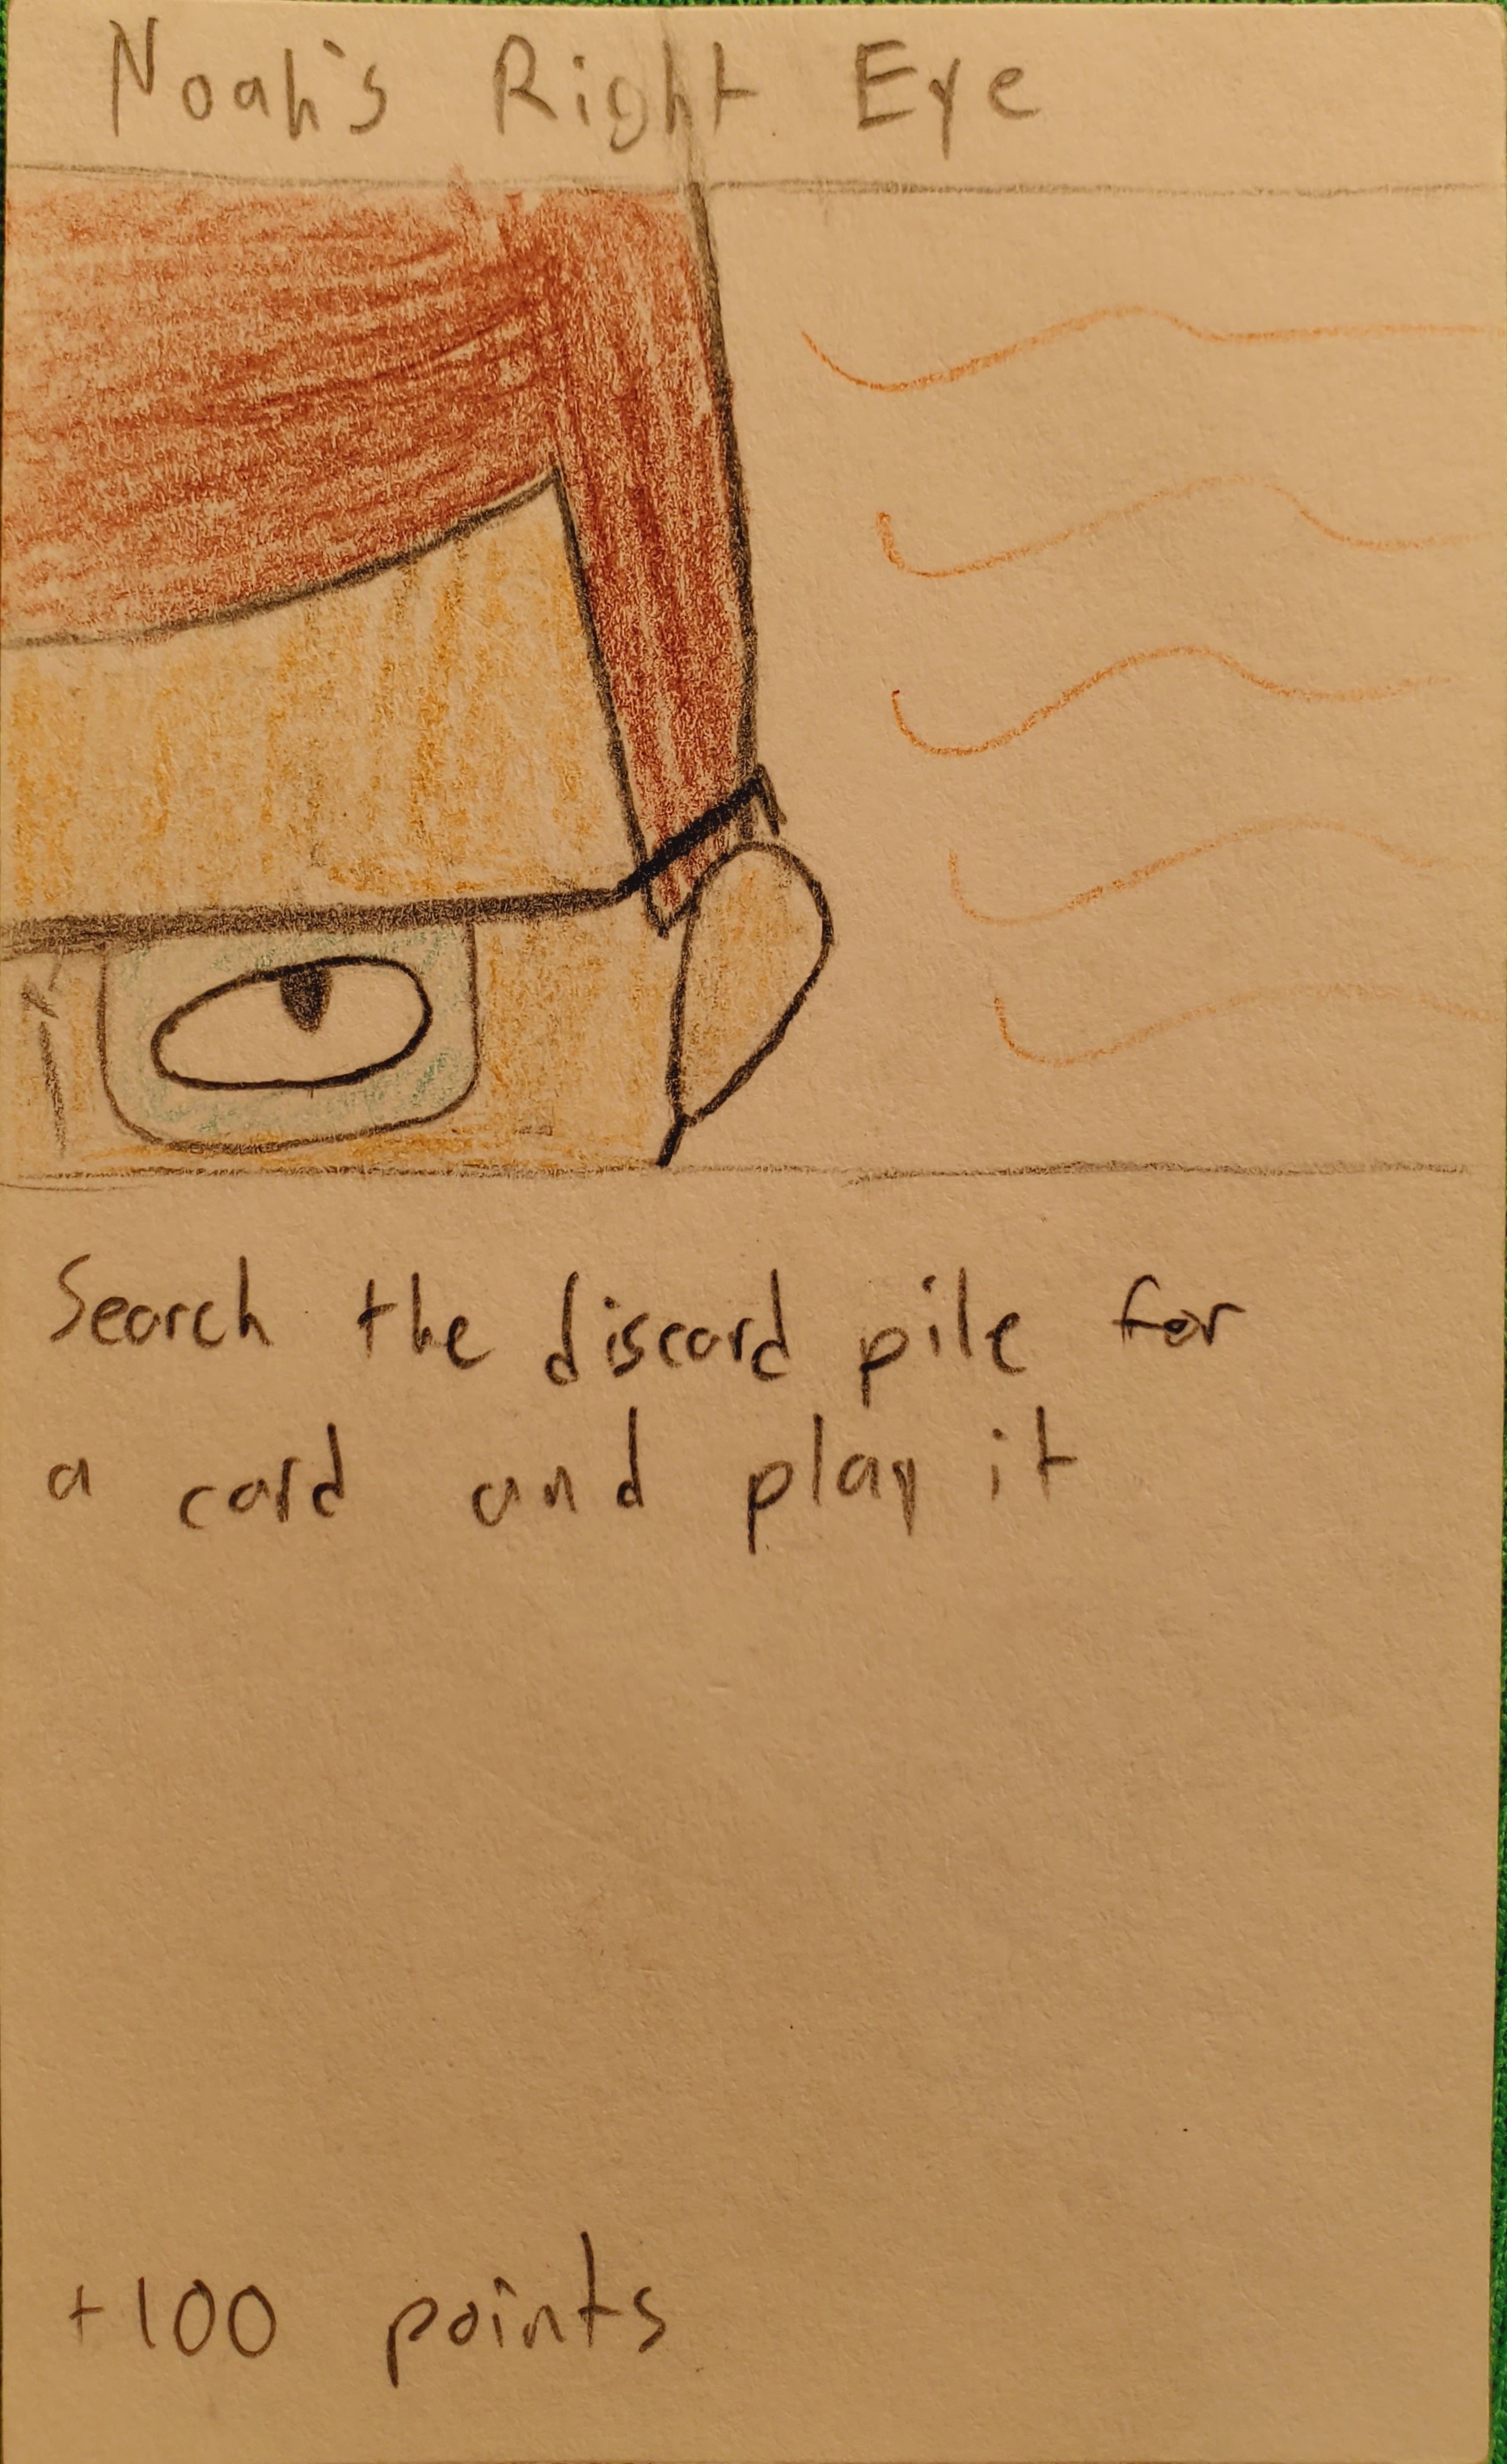 Noah's Right Eye
Search the discard pile for
a card and play it
+100 points